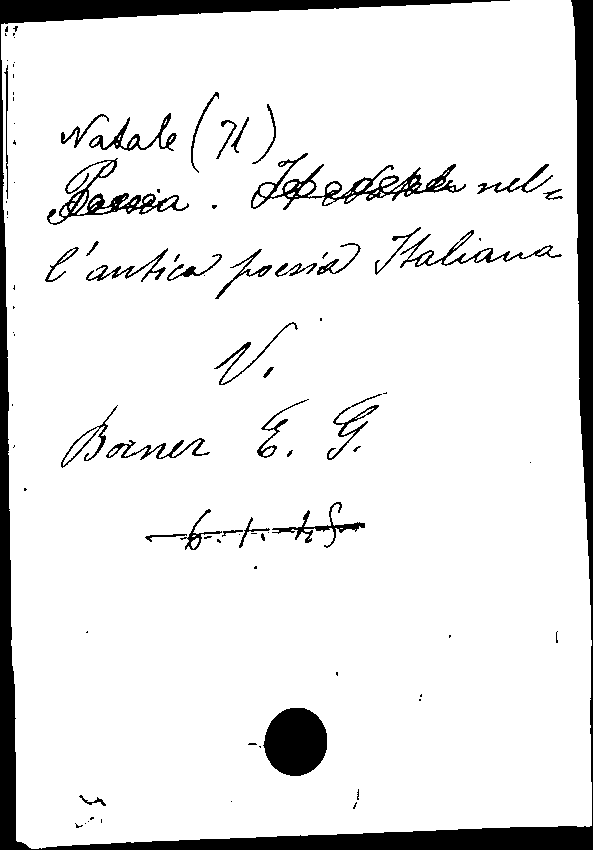 Natale (71)
Poesia. Il Natale nel-
l'antica poesia Italiana
V.
Borner E. G.
6.1.45